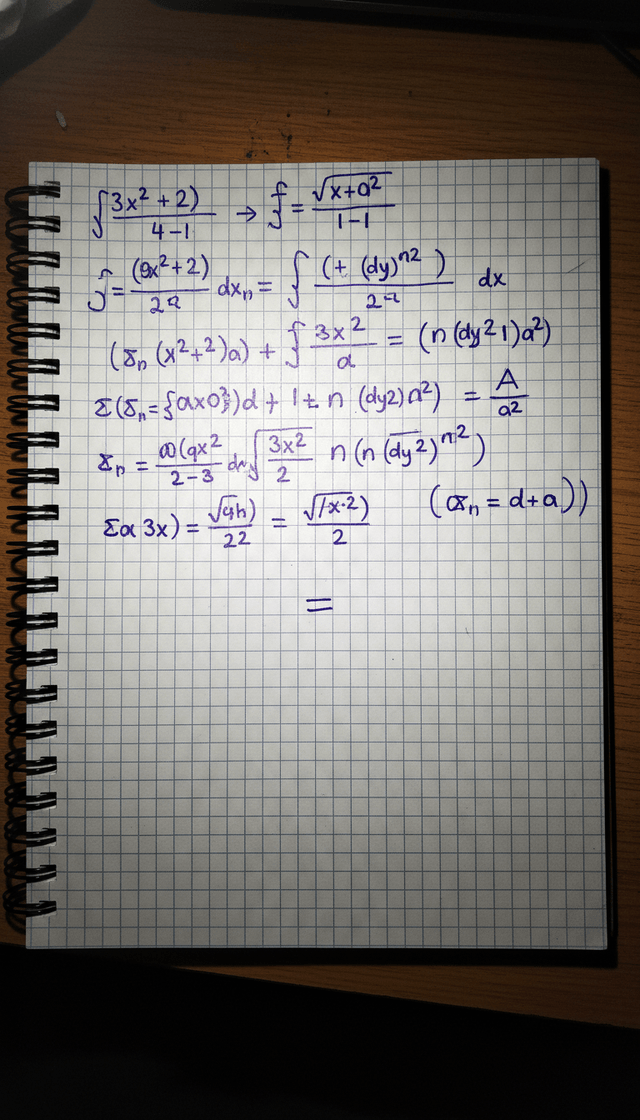 ∫ 3x² + 2) / 4 - 1 → f = √x+a² / 1 - 1
= (θx² + 2) / 2a dxₙ = ∫ (+ (dy)ⁿ² ) / 2a dx
(ɣₙ (x² +²)a) + ∫ 3x² / a = (n (dy² 1) a²)
Σ(ɣₙ = {ax0}) d + 1 ± n (dy2) n²) = A / a²
ɣₙ = ∞(qx² / 2 - 3 √3x² / 2 n (n (dy²)ⁿ²)
Σa 3x) = √qh) / 22 = √1x·2) / 2 (αxₙ = d + a))
=